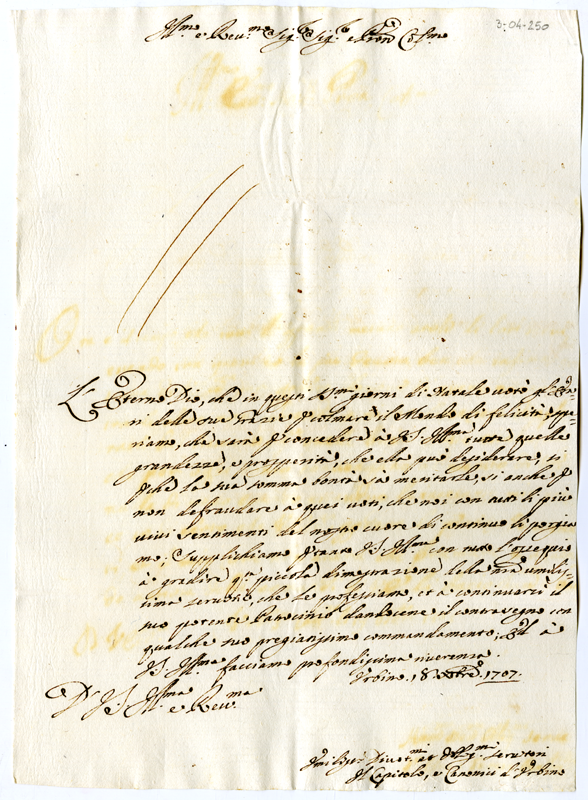 3-04-250
Ill.mo e Rev.mo Sig.r Sig.r e Pron Col.mo
L'Eterno Dio, che in questi S.mi giorni di Natale
ri delle sue grazie p colmare il Mondo di felicità, spe-
riamo, che sarà p concedere à V.S. Ill.ma tutte quelle
grandezze, e prosperità, che ella può desiderare, sì
pche la sua somma bontà sà meritarle, sì anche p
non defraudare à quei voti, che noi con tutti li più
vivi sentimenti del nostro cuore di continuo li porgia
mo; Supplichiamo p tanto V.S. Ill.ma con tutto l'ossequio
à gradire q.ta piccola dimostrazione della nra umilis-
sima servitù, che le professiamo, et à continuarci il
suo potente Patrocinio dandocene il contrasegno con
qualche suo pregiatissimo commandamento; à
V.S. Ill.ma facciamo profondissima riverenza.
Urbino 18 Xbre 1707.
D. V.S. Ill.ma
e Rev.ma
Umiliss.i Divot.mi et Obblig.mi Servitori
Il Capitolo, e Canonici d'Urbino